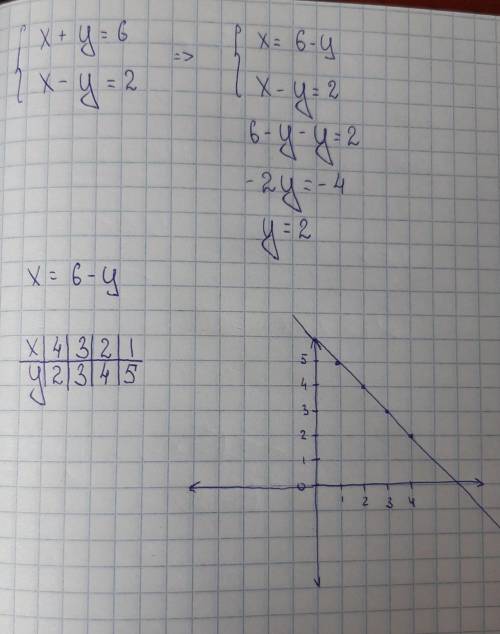 { x + y = 6
x - y = 2
=>
{ x = 6 - y
x - y = 2
6 - y - y = 2
- 2y = - 4
y = 2
x = 6 - y
x | 4 | 3 | 2 | 1
y | 2 | 3 | 4 | 5
5
4
3
2
1
0
1 2 3 4